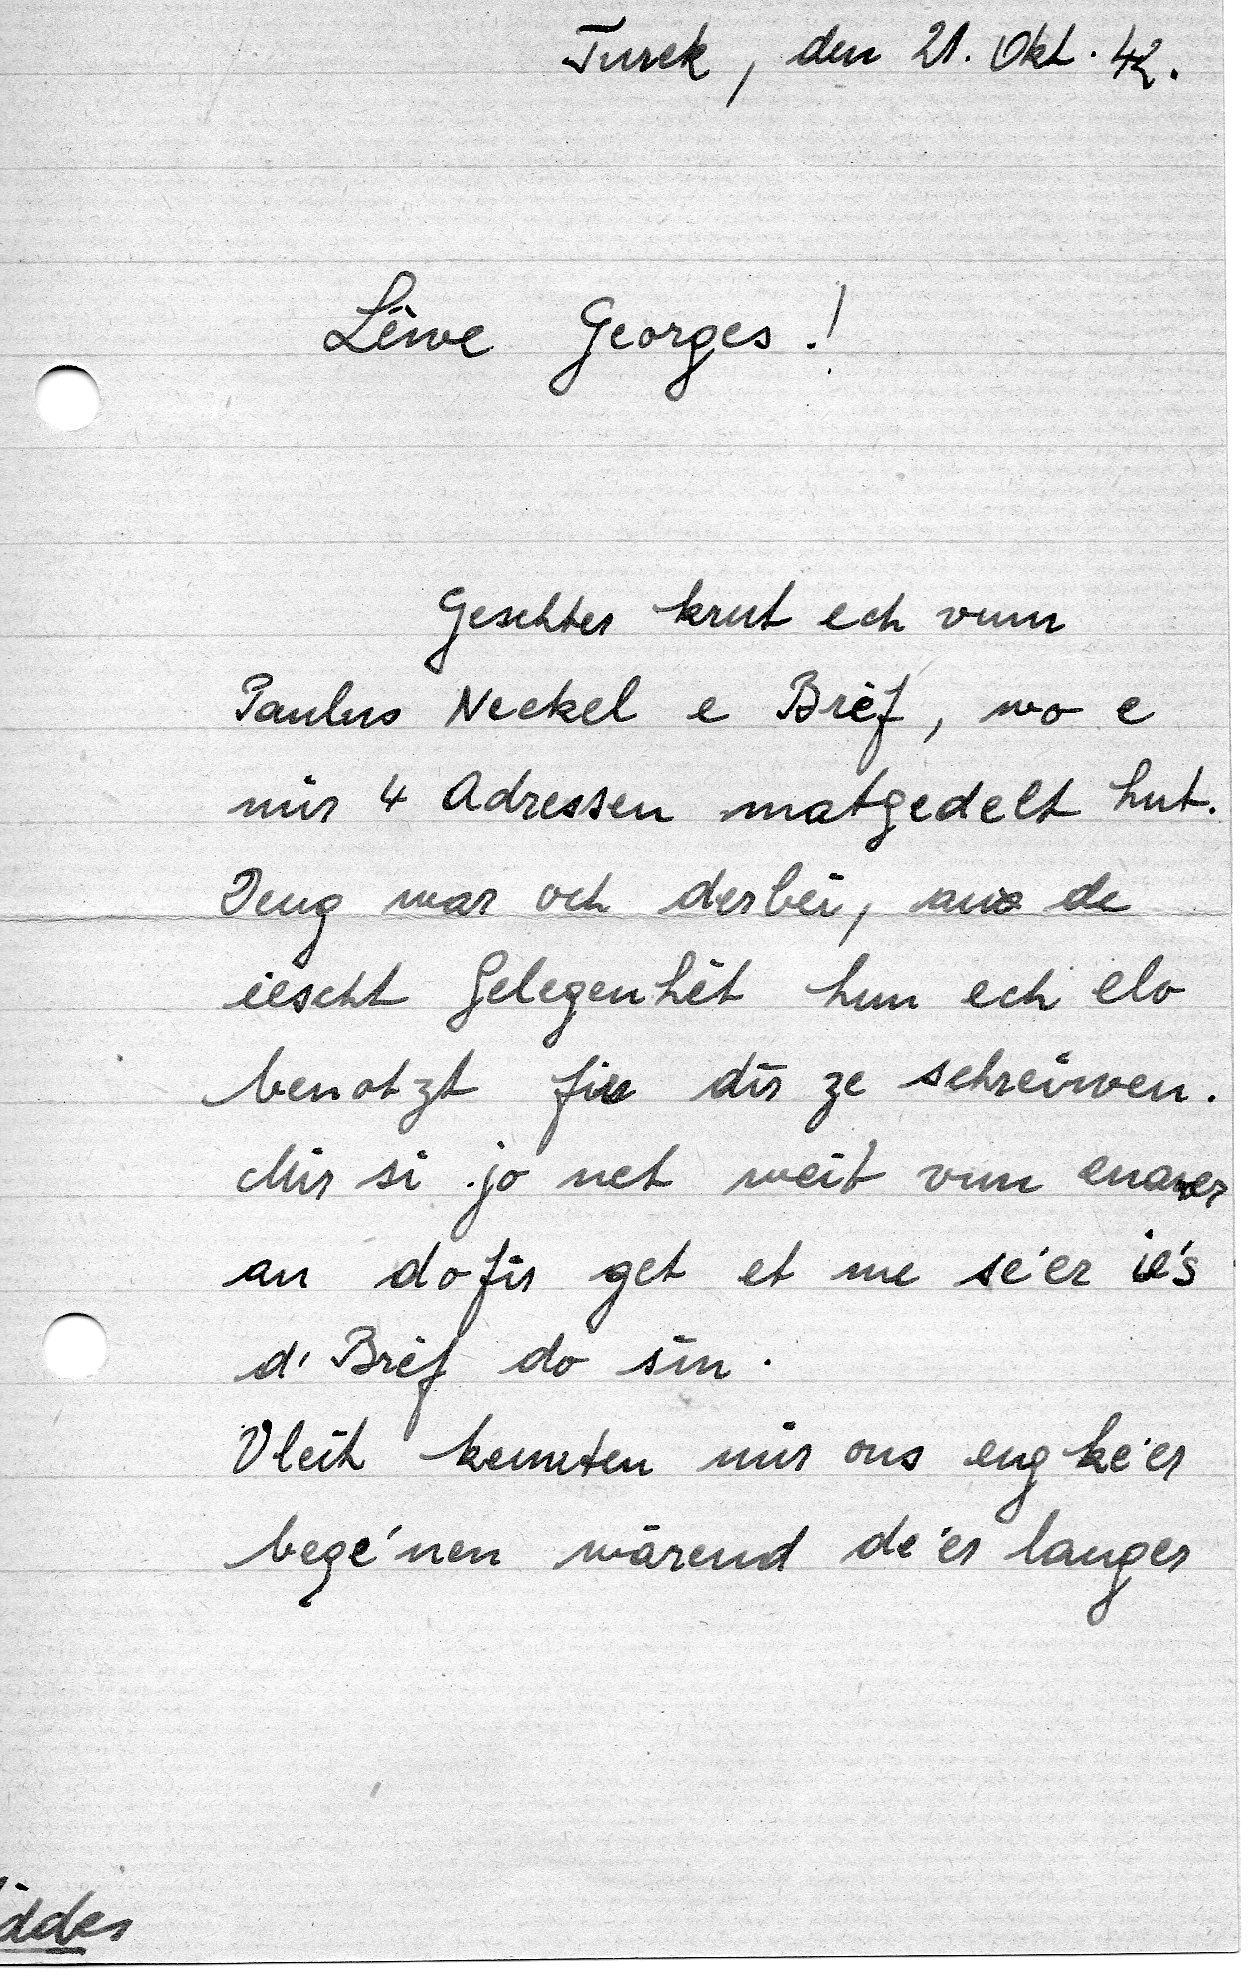 Turek, den 21. Okt. 42.
Lêwe Georges!
Geschter krut ech vum
Paulus Neckel e Brêf, wo e
mir 4 Adressen matgedelt hut.
Deng war och derbei, aus de
iescht Gelegenhêt hun ech elo
benotzt fir dir ze schreiwen.
Mir si jo net weit vun enaner
an dofir get et me se'er ie's
d'Brêf do sin.
Vleit kennten mir ons eng ke'er
bege'nen wärend de'er langer